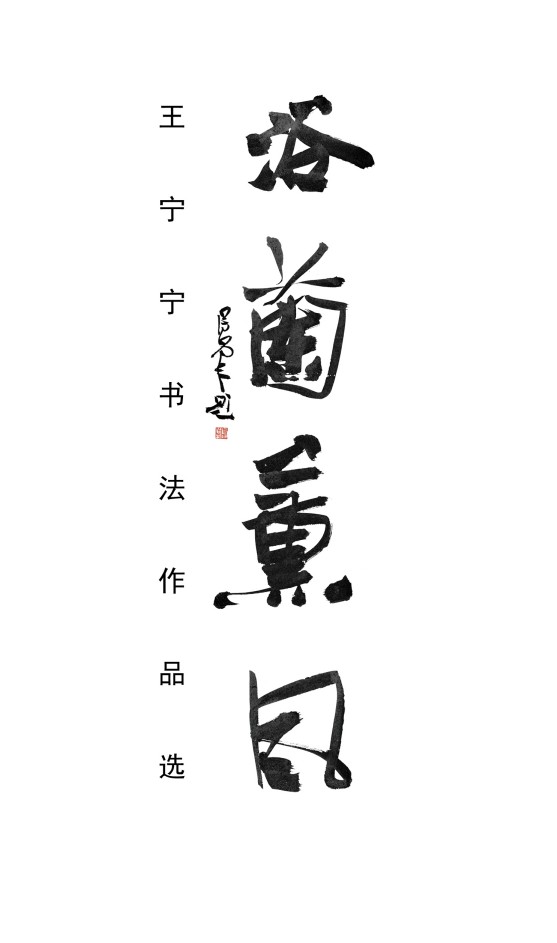 谷蘭熏風
王宁宁书法作品选